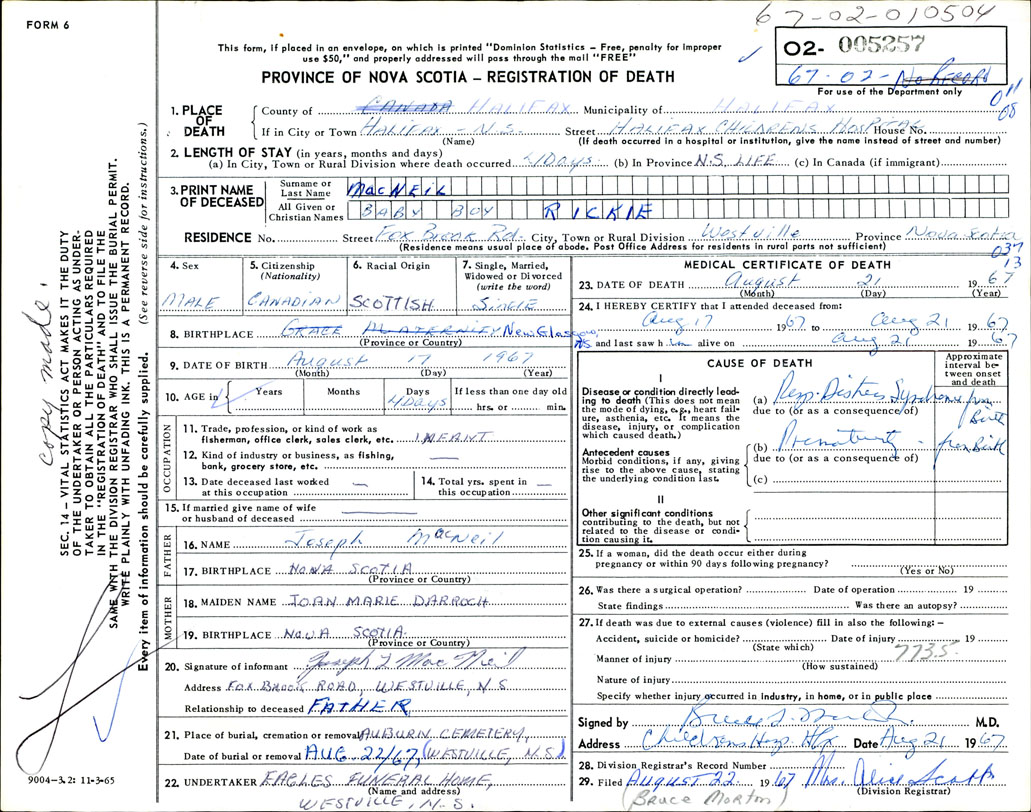 FORM 6
67-02-010504
This form, if placed in an envelope, on which is printed "Dominion Statistics – Free, penalty for improper
use $50," and properly addressed will pass through the mail "FREE"
02- 005257
67-02- No Record
For use of the Department only
PROVINCE OF NOVA SCOTIA – REGISTRATION OF DEATH
011
08
1. PLACE OF DEATH
County of CANADA HALIFAX Municipality of HALIFAX
If in City or Town HALIFAX - N.S. Street HALIFAX CHILDRENS HOSPITAL House No.
(Name) (If death occurred in a hospital or institution, give the name instead of street and number)
2. LENGTH OF STAY (in years, months and days)
(a) In City, Town or Rural Division where death occurred 4 DAYS (b) In Province N.S. LIFE (c) In Canada (if immigrant)
3. PRINT NAME OF DECEASED
Surname or Last Name MacNEIL
All Given or Christian Names BABY BOY RICKIE
RESIDENCE No. Street Fox Brook Rd. City, Town or Rural Division Westville Province Nova Scotia
(Residence means usual place of abode. Post Office Address for residents in rural parts not sufficient)
037
13
4. Sex MALE
5. Citizenship (Nationality) CANADIAN
6. Racial Origin SCOTTISH
7. Single, Married, Widowed or Divorced (write the word) SINGLE
8. BIRTHPLACE GRACE MATERNITY New Glasgow, NS
(Province or Country)
9. DATE OF BIRTH August 17 1967
(Month) (Day) (Year)
10. AGE in Years Months Days 4 DAYS If less than one day old hrs. or min.
OCCUPATION
11. Trade, profession, or kind of work as fisherman, office clerk, sales clerk, etc. INFANT
12. Kind of industry or business, as fishing, bank, grocery store, etc. —
13. Date deceased last worked at this occupation —
14. Total yrs. spent in this occupation —
15. If married give name of wife or husband of deceased
FATHER
16. NAME Joseph MacNeil
17. BIRTHPLACE NOVA SCOTIA
(Province or Country)
MOTHER
18. MAIDEN NAME JOAN MARIE DARROCH
19. BIRTHPLACE NOVA SCOTIA
(Province or Country)
20. Signature of informant Joseph L MacNeil
Address FOX BROOK ROAD, WESTVILLE, N S
Relationship to deceased FATHER
21. Place of burial, cremation or removal AUBURN CEMETERY,
Date of burial or removal AUG 22/67, (WESTVILLE, N.S.)
22. UNDERTAKER EAGLES FUNERAL HOME,
(Name and address)
WESTVILLE, N.S.
MEDICAL CERTIFICATE OF DEATH
23. DATE OF DEATH August 21 1967
(Month) (Day) (Year)
24. I HEREBY CERTIFY that I attended deceased from:
Aug 17 1967 to Aug 21 1967
and last saw h im alive on Aug 21 1967
CAUSE OF DEATH
Approximate interval between onset and death
I
Disease or condition directly leading to death (This does not mean the mode of dying, e.g., heart failure, asthenia, etc. It means the disease, injury, or complication which caused death.)
(a) Resp. Distress Syndrome from Birth
due to (or as a consequence of)
Antecedent causes
Morbid conditions, if any, giving rise to the above cause, stating the underlying condition last.
(b) Prematurity from Birth
due to (or as a consequence of)
(c)
II
Other significant conditions
contributing to the death, but not related to the disease or condition causing it.
25. If a woman, did the death occur either during
pregnancy or within 90 days following pregnancy?
(Yes or No)
26. Was there a surgical operation? Date of operation 19
State findings Was there an autopsy?
27. If death was due to external causes (violence) fill in also the following: –
Accident, suicide or homicide? Date of injury 19
(State which) 773.5
Manner of injury
(How sustained)
Nature of injury
Specify whether injury occurred in industry, in home, or in public place
Signed by M.D.
Address Childrens Hosp. Hfx Date Aug 21 1967
28. Division Registrar's Record Number
29. Filed AUGUST 22 1967 Mrs. Alice Scott
(Division Registrar)
(Bruce Morton)
9004–3.2: 11-3-65
copy made.
SEC. 14 – VITAL STATISTICS ACT MAKES IT THE DUTY
OF THE UNDERTAKER OR PERSON ACTING AS UNDER-
TAKER TO OBTAIN ALL THE PARTICULARS REQUIRED
IN THE "REGISTRATION OF DEATH" AND TO FILE THE
SAME WITH THE DIVISION REGISTRAR WHO SHALL ISSUE THE BURIAL PERMIT.
WRITE PLAINLY WITH UNFADING INK. THIS IS A PERMANENT RECORD.
Every item of information should be carefully supplied. (See reverse side for instructions.)